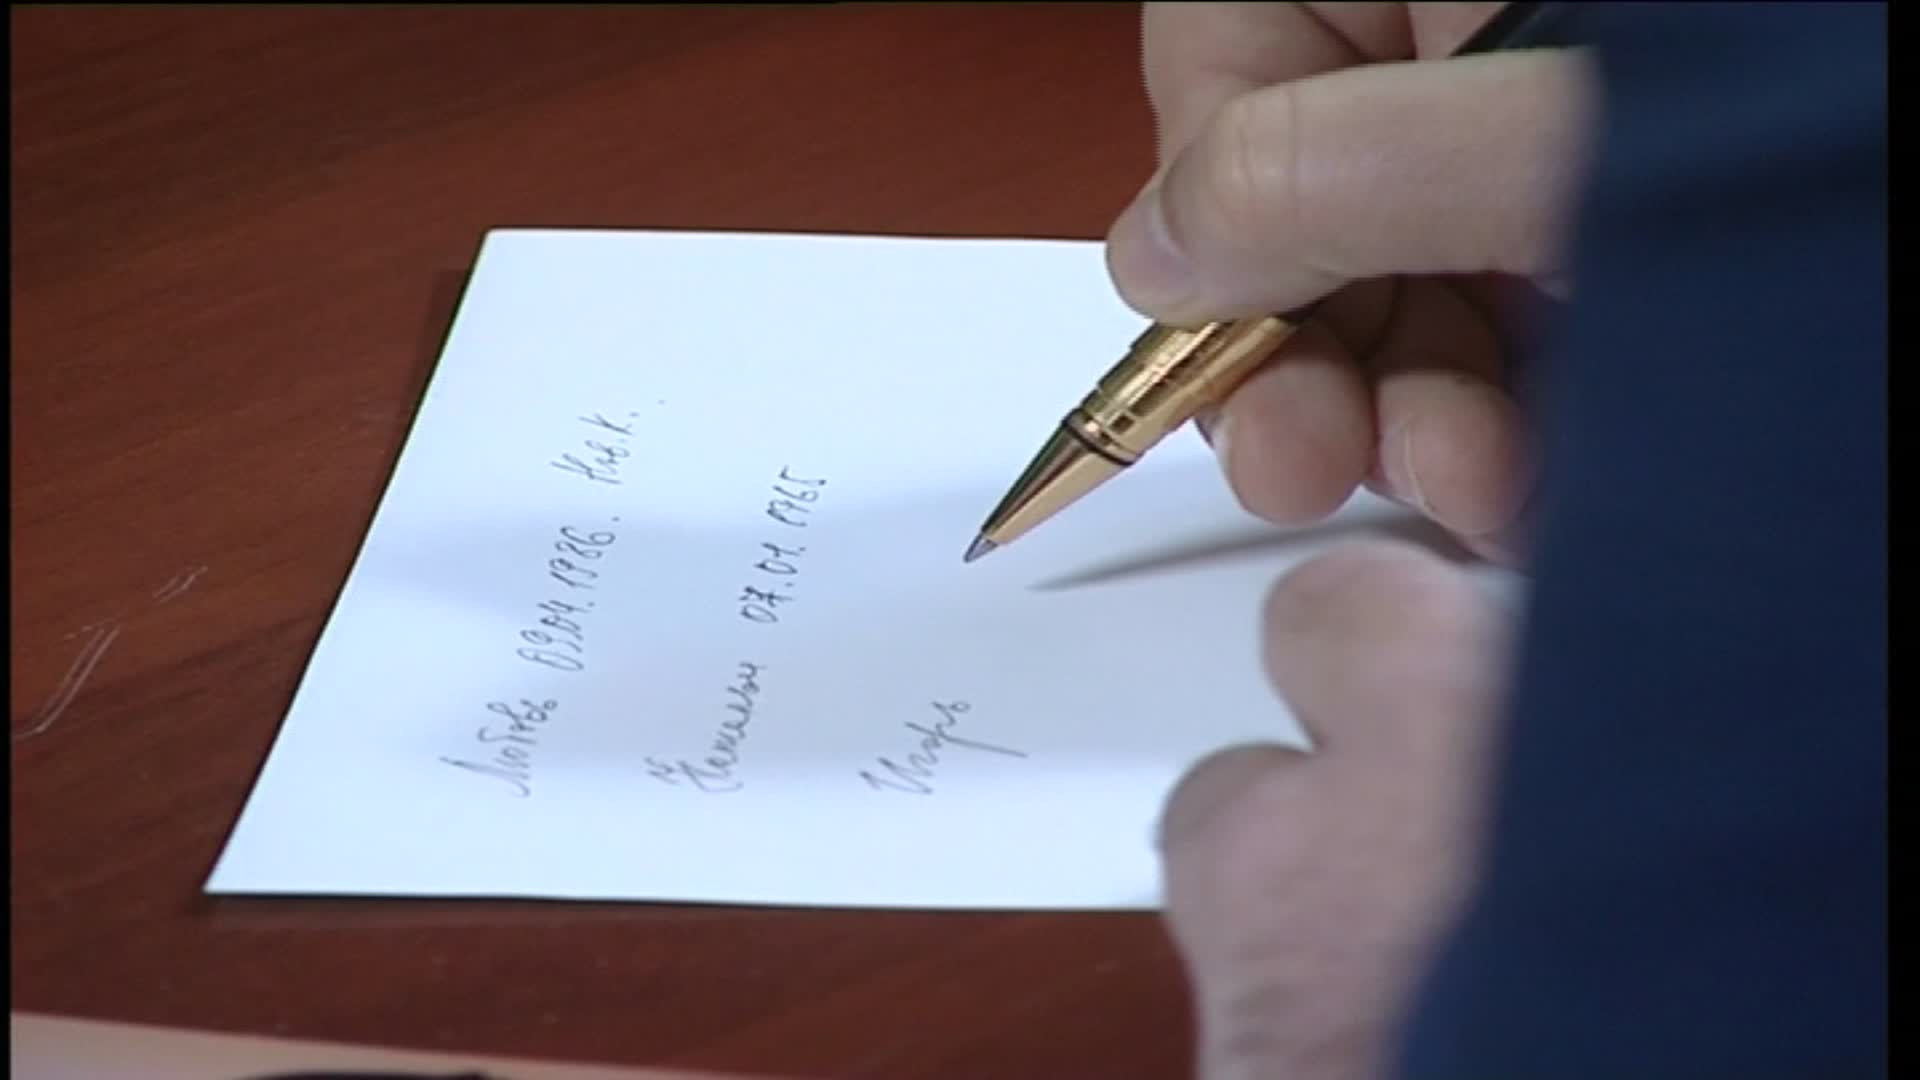 Любовь 09.04.1986. Нов.К.
Наталья 07.01.1965
Игорь